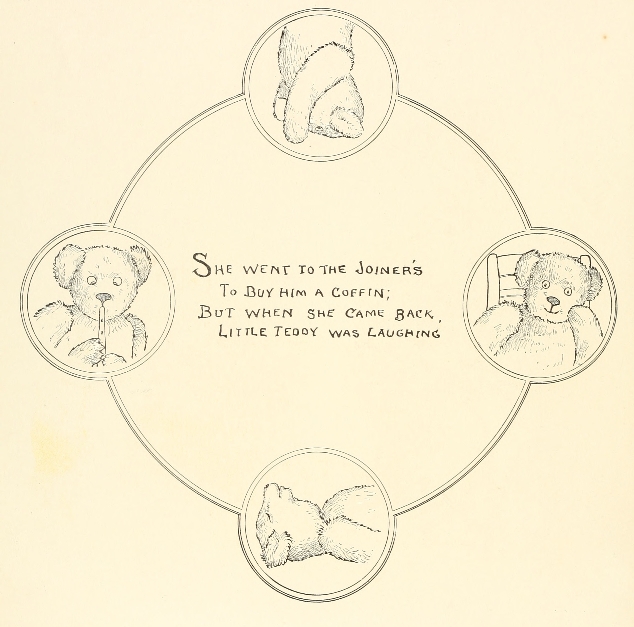 SHE WENT TO THE JOINER'S
TO BUY HIM A COFFIN;
BUT WHEN SHE CAME BACK,
LITTLE TEDDY WAS LAUGHING